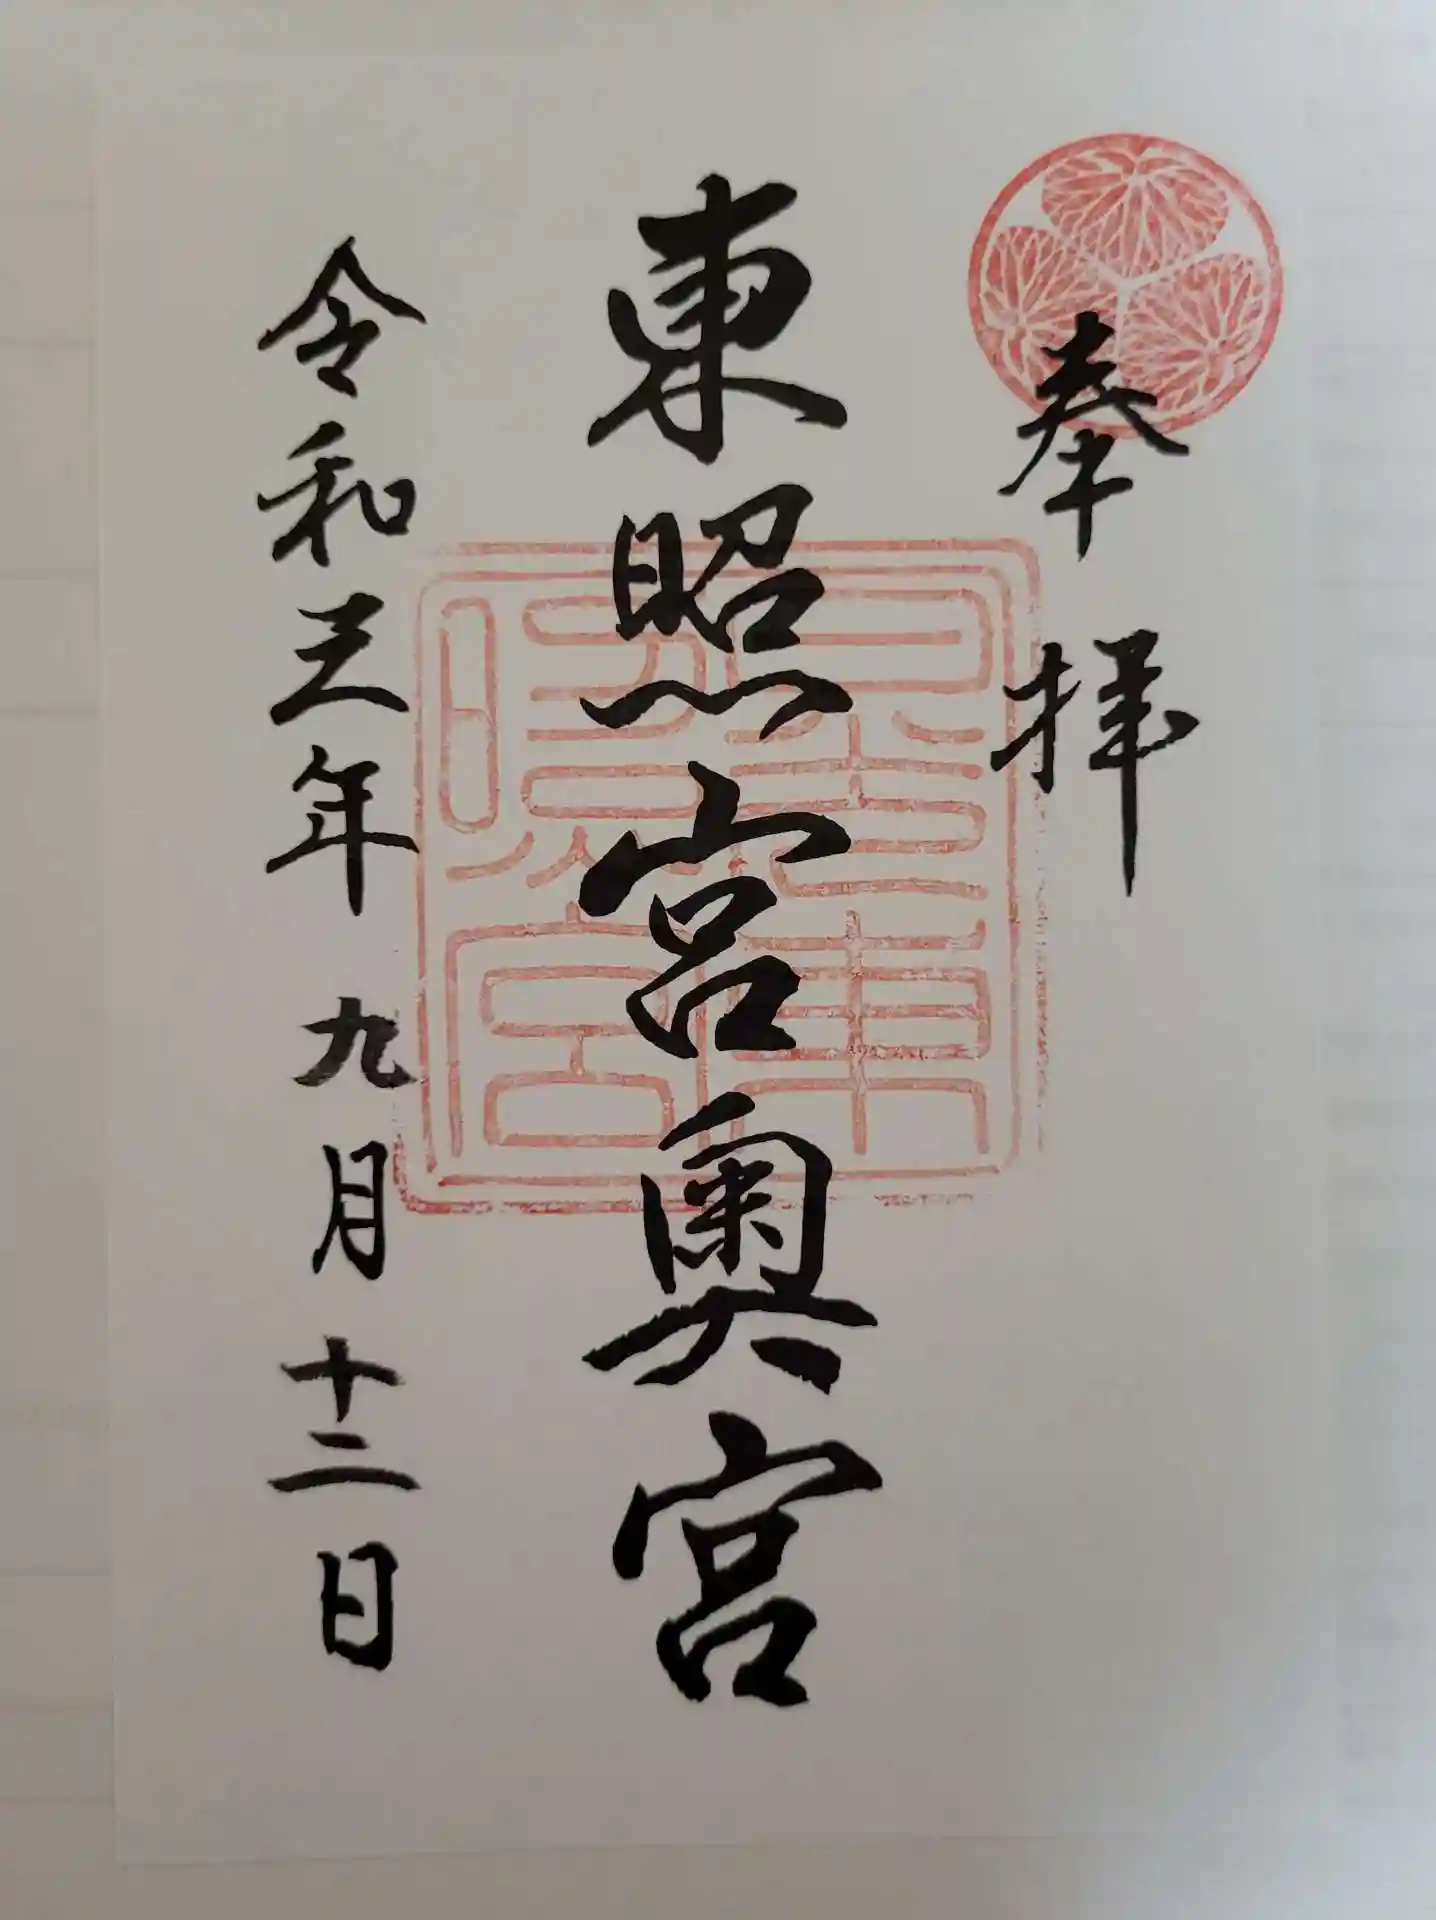 奉拝
東照宮奥宮
令和三年九月十二日